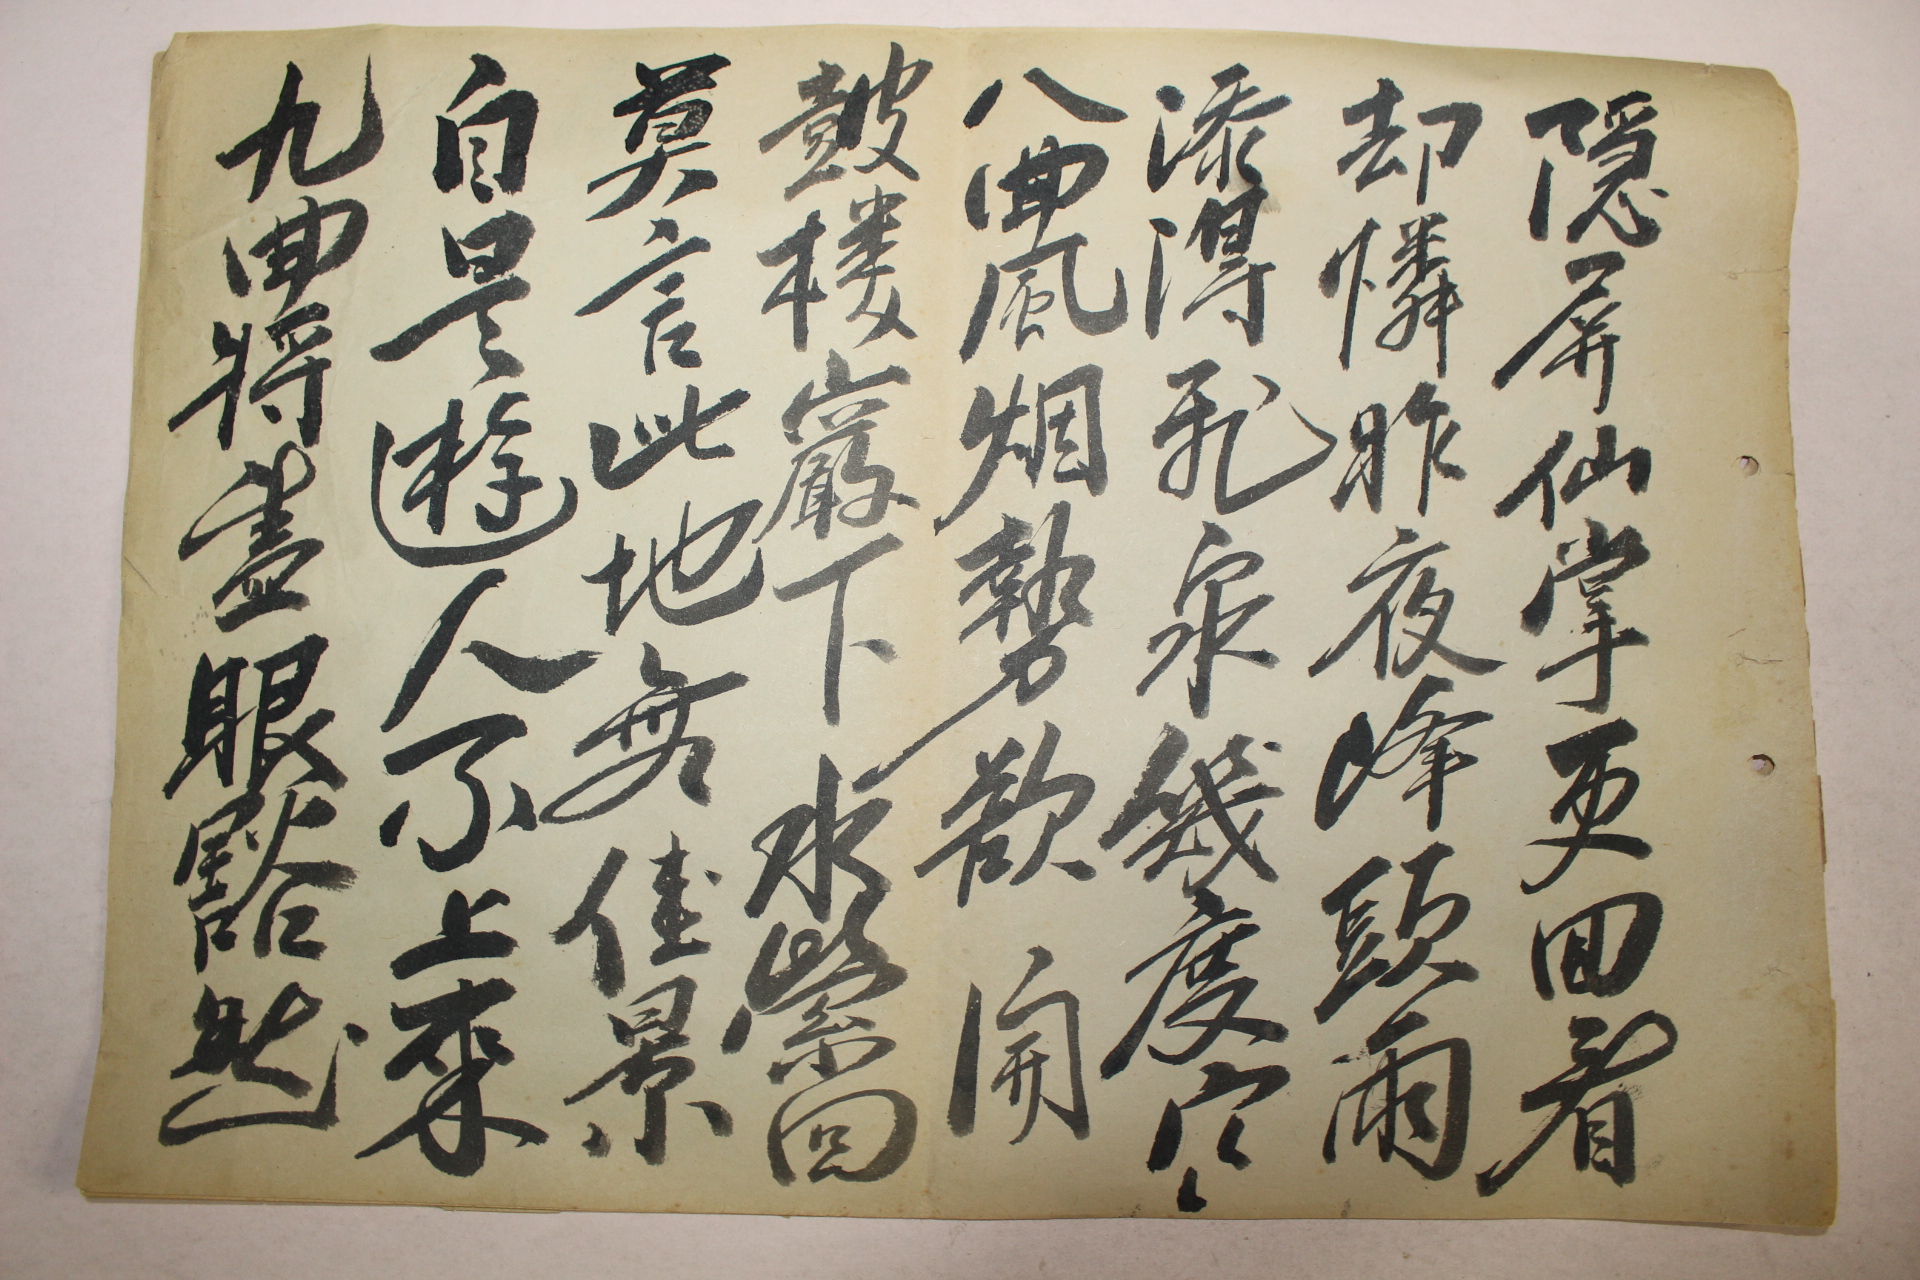 隠屏仙掌更回看
却憐昨夜峰頭雨
添得飛泉幾度寒
八曲風烟勢欲開
皷楼巖下水縈回
莫言此地無佳景
自是遊人不上来
九曲将盡眼豁然